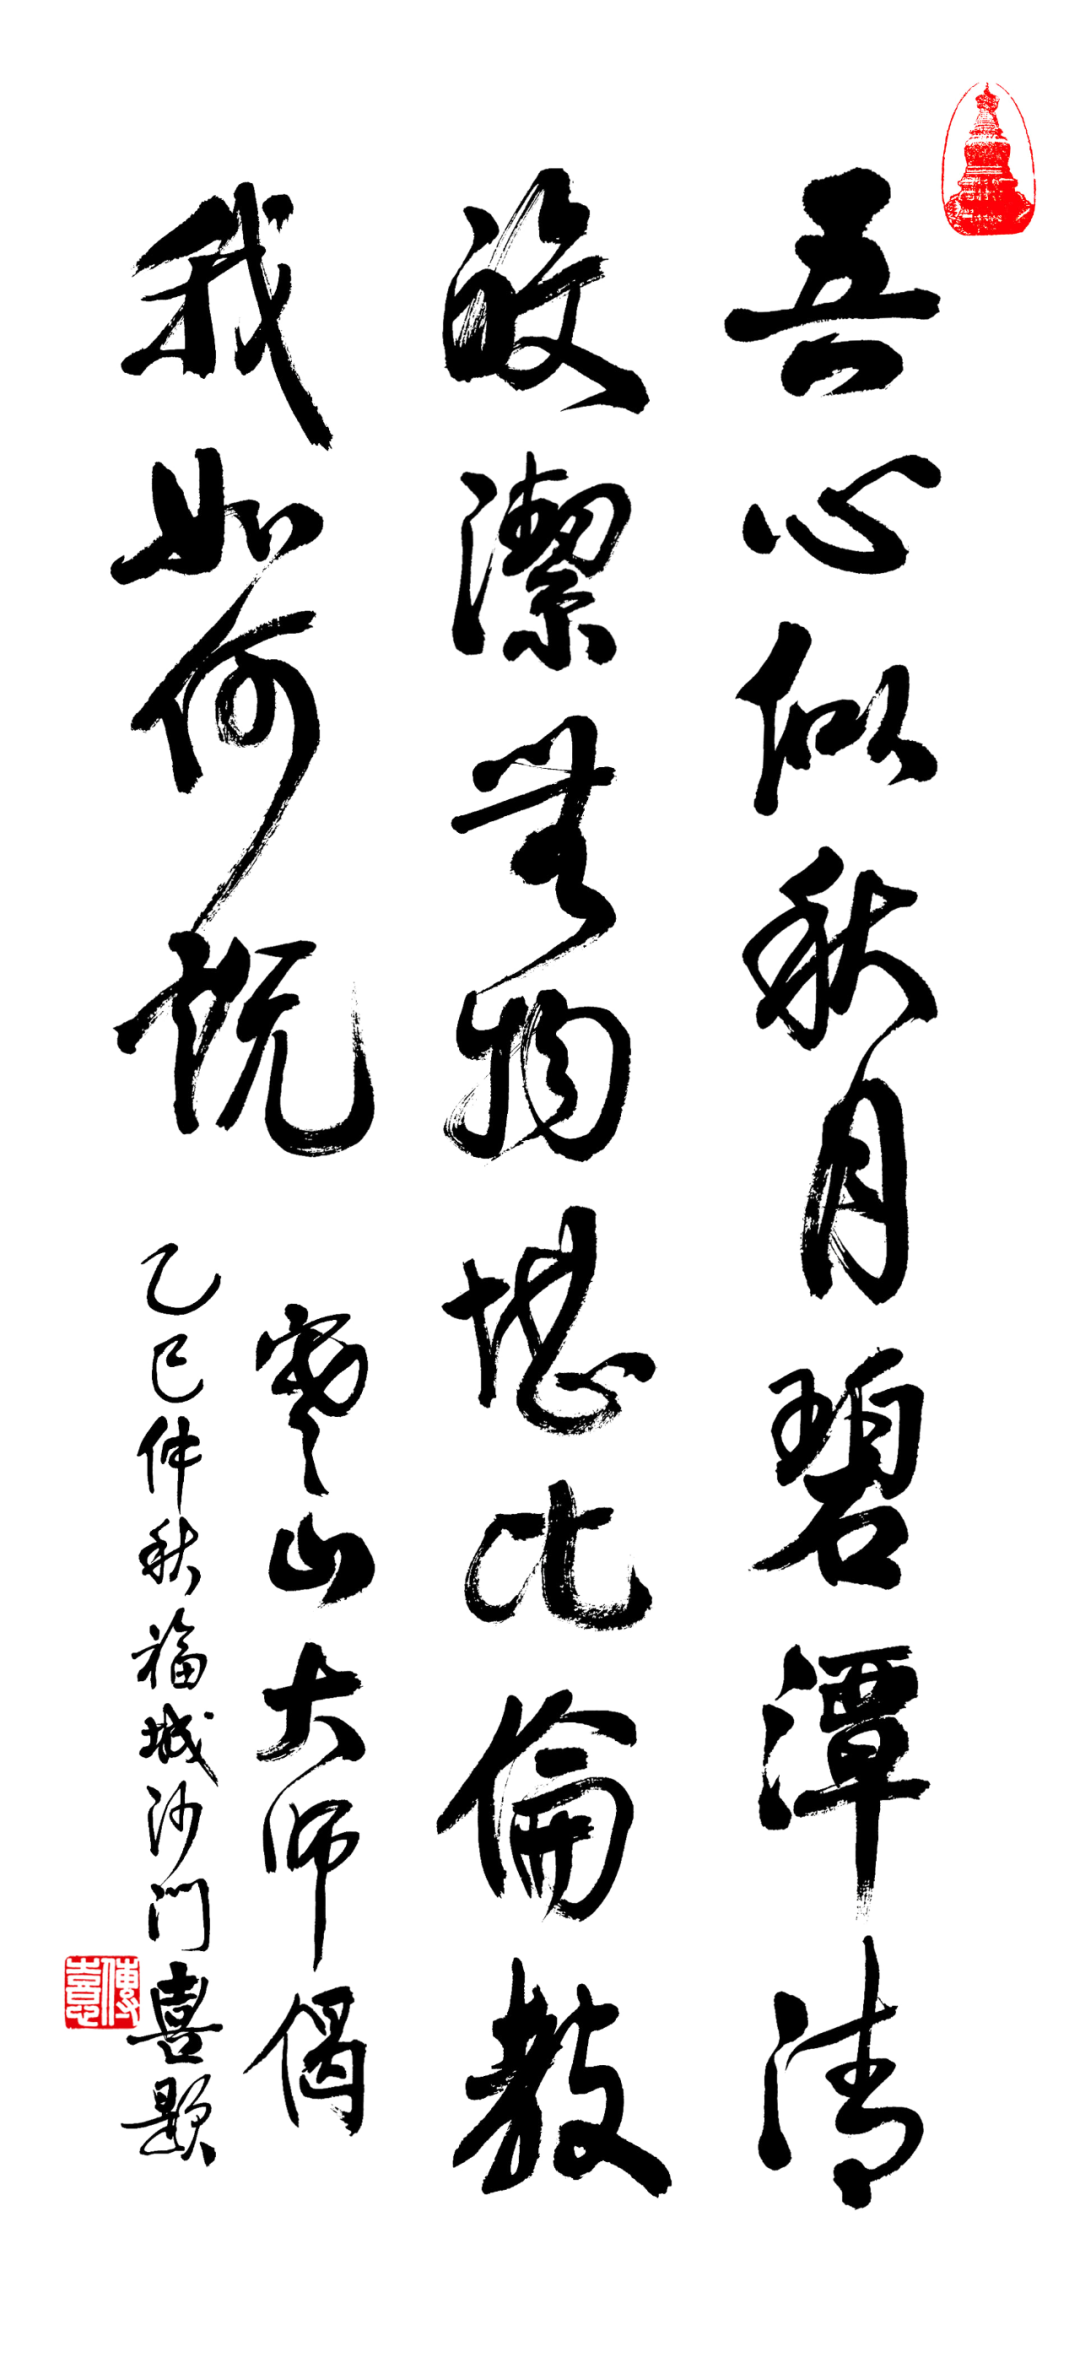 吾心似秋月碧潭清
皎潔無物堪比倫教
我如何說
寒山大師偈
乙巳仲秋福城沙門喜題
傳喜